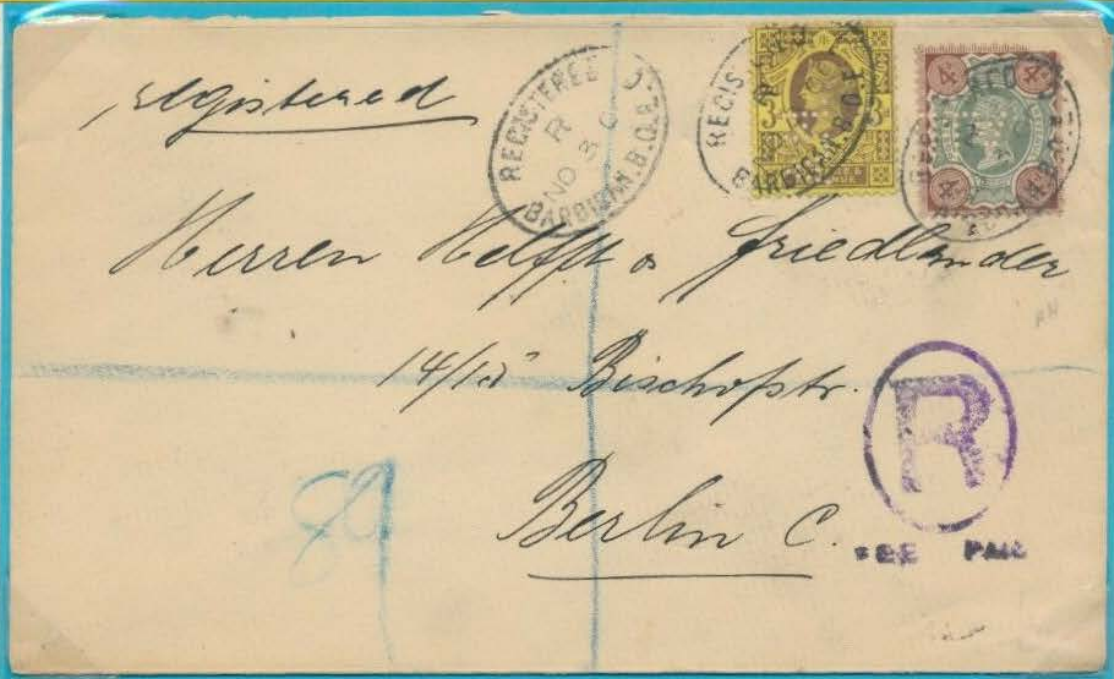 registered
REGISTERED
R
NO 3 0
BARBICAN. B.O.E.
REGIS
BARBICAN. B.O.E.
3
4 4
4 4
Herren Helfft & Friedländer
14/15 Bischofstr.
R
FEE PAID
Berlin C.